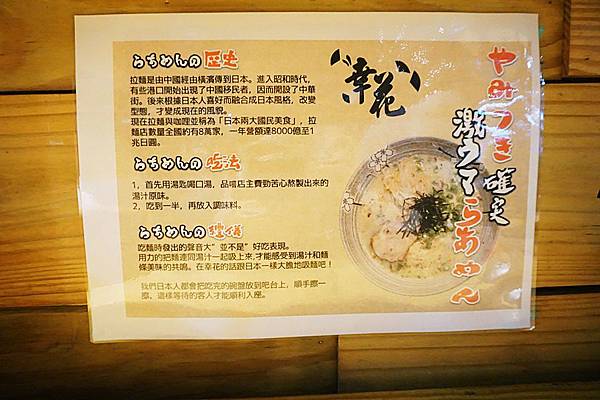 らあめんの歴史
拉麵是由中國經由橫濱傳到日本。進入昭和時代，
有些港口開始出現了中國移民者，因而開設了中華
街。後來根據日本人喜好而融合成日本風格，改變
型態，才變成現在的風貌。
現在拉麵與咖哩並稱為「日本兩大國民美食」，拉
麵店數量全國約有8萬家，一年營額達8000億至1
兆日圓。
らあめんの吃法
1，首先用湯匙喝口湯，品嚐店主費勁苦心熬製出來的
湯汁原味。
2，吃到一半，再放入調味料。
らあめんの禮儀
吃麵時發出的聲音大”並不是”好吃表現。
用力的把麵連同湯汁一起吸上來,才能感受到湯汁和麵
條美味的共鳴。在幸花的話跟日本一樣大膽地吸麵吧！
我們日本人都會把吃完的碗盤放到吧台上，順手擦一
擦。這樣等待的客人才能順利入座。
幸花
やみつき確定
激ウマらあめん